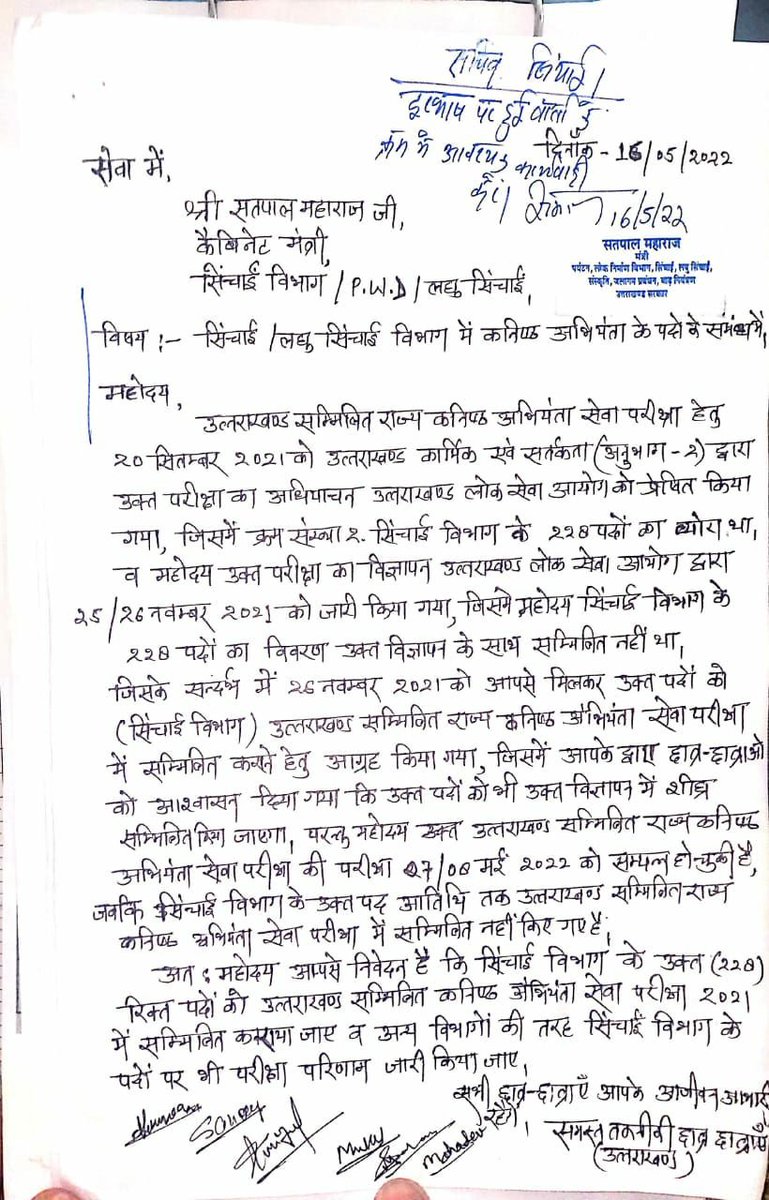 सचिव सिंचाई।
दूरभाष पर हुई वार्ता के
क्रम में आवश्यक कार्यवाही
करें।
16/5/22
दिनाँक - 16/05/2022
सतपाल महाराज
मंत्री
पर्यटन, लोक निर्माण विभाग, सिंचाई, लघु सिंचाई,
संस्कृति, जलागम प्रबंधन, बाढ़ नियंत्रण
उत्तराखण्ड सरकार
सेवा में,
श्री सतपाल महाराज जी,
कैबिनेट मंत्री,
सिंचाई विभाग /P.W.D/ लघु सिंचाई,
विषय :- सिंचाई /लघु सिंचाई विभाग में कनिष्ठ अभियंता के पदो के संबंध में,
महोदय,
उत्तराखण्ड सम्मिलित राज्य कनिष्ठ अभियंता सेवा परीक्षा हेतु
20 सितम्बर 2021 को उत्तराखण्ड कार्मिक एवं सतर्कता (अनुभाग-2) द्वारा
उक्त परीक्षा का अधियाचन उत्तराखण्ड लोक सेवा आयोग को प्रेषित किया
गया, जिसमें क्रम संख्या 2. सिंचाई विभाग के 228 पदों का ब्योरा था,
व महोदय उक्त परीक्षा का विज्ञापन उत्तराखण्ड लोक सेवा आयोग द्वारा
25/26 नवम्बर 2021 को जारी किया गया, जिसमे महोदय सिंचाई विभाग के
228 पदों का विवरण उक्त विज्ञापन के साथ सम्मिलित नहीं था,
जिसके सन्दर्भ में 26 नवम्बर 2021 को आपसे मिलकर उक्त पदों को
(सिंचाई विभाग) उत्तराखण्ड सम्मिलित राज्य कनिष्ठ अभियंता सेवा परीक्षा
में सम्मिलित कराने हेतु आग्रह किया गया, जिसमें आपके द्वारा छात्र-छात्राओ
को आश्वासन दिया गया कि उक्त पदों को भी उक्त विज्ञापन में शीघ्र
सम्मिलित किया जाएगा, परन्तु महोदय उक्त उत्तराखण्ड सम्मिलित राज्य कनिष्ठ
अभियंता सेवा परीक्षा की परीक्षा 07/08 मई 2022 को सम्पन्न हो चुकी है,
जबकि सिंचाई विभाग के उक्त पद आतिथि तक उत्तराखण्ड सम्मिलित राज्य
कनिष्ठ अभियंता सेवा परीक्षा में सम्मिलित नहीं किए गए है,
अतः महोदय आपसे निवेदन है कि सिंचाई विभाग के उक्त (228)
रिक्त पदों को उत्तराखण्ड सम्मिलित कनिष्ठ अभियंता सेवा परीक्षा 2021
में सम्मिलित कराया जाए व अन्य विभागों की तरह सिंचाई विभाग के
पदों पर भी परीक्षा परिणाम जारी किया जाए,
सभी छात्र-छात्राएँ आपके आजीवन आभारी
रहेंगे,
समस्त तकनीकी छात्र छात्राएँ
(उत्तराखण्ड)
Mahadev